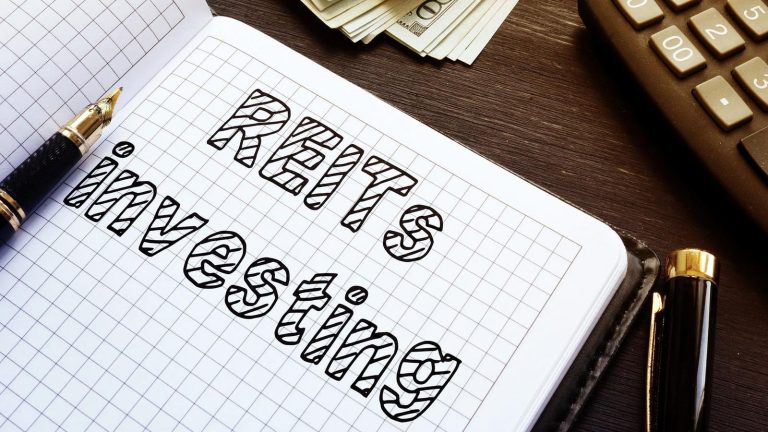 REITs
investing
5
2
00
3
.